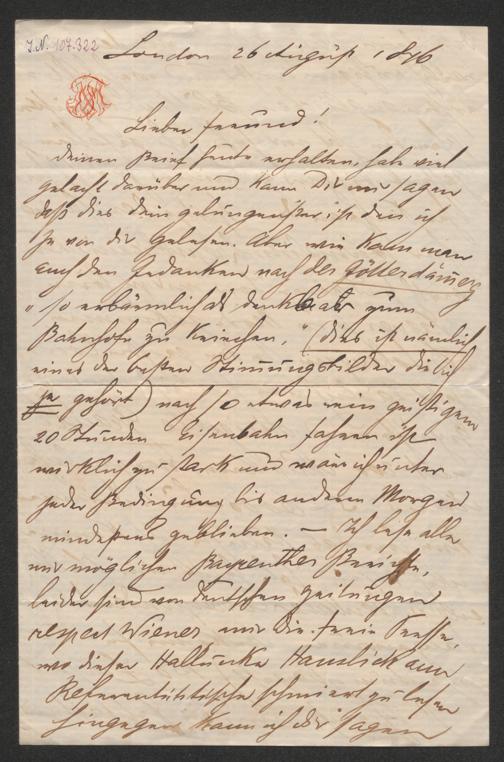 I.N. 107.322
London 26 August 1876
Lieber Freund!
Deinen Brief heute erhalten, habe viel
gelacht darüber und kann Dir nur sagen
daß dies dein gelungenster ist den ich
je von dir gelesen. Aber wie kann man
auch den Gedanken nach der Götterdämerg
"so erbärmlich als denkbar zum
Bahnhofe zu kriechen," (dies ist nämlich
eines der besten Stimungsbilder die ich
je gehört) nach so etwas rein geistigem
20 Stunden Eisenbahn fahren ist
wirklich zu stark und wäre ich unter
jeder Bedingung bis anderen Morgen
mindestens geblieben. — Ich lese alle
nur möglichen Bayreuther Berichte,
leider sind von deutschen Zeitungen
respect Wiener nur die freie Presse,
wo dieser Hallunke Hanslick am
Referententische schmiert zu lesen
hingegen kann ich dir sagen